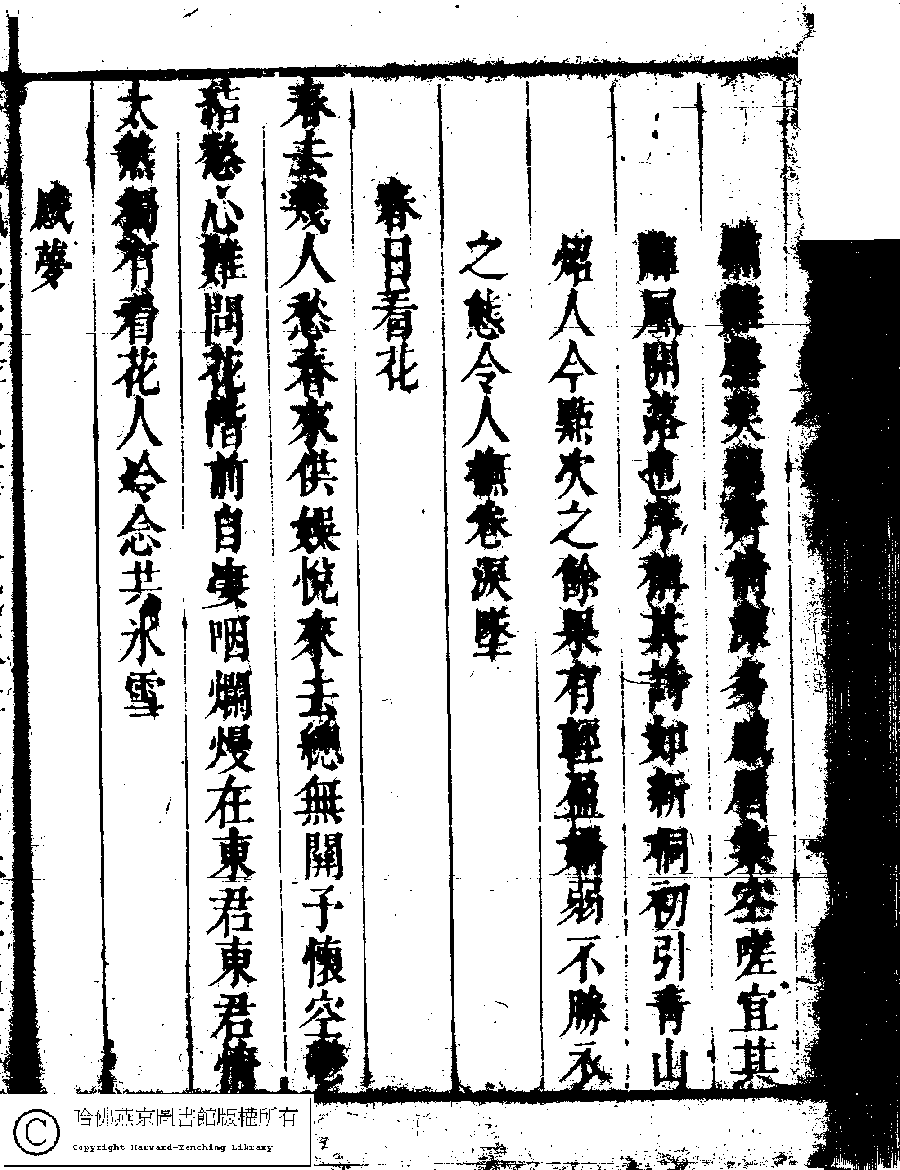 難矣情深多集空嗟宜其
隨風開落也序稱其詩如新桐初引青山
炤人今點次之餘果有輕盈嬌弱不勝衣
之態令人撫卷淚墜
春日看花
春去幾人愁春來供娛悅來去總無關予懷空鬱
結愁心難問花階前自凄咽爛熳在東君東君情
太熱獨有看花人冷念共氷雪
感夢
哈佛燕京圖書館版權所有
Copyright Harvard-Yenching Library